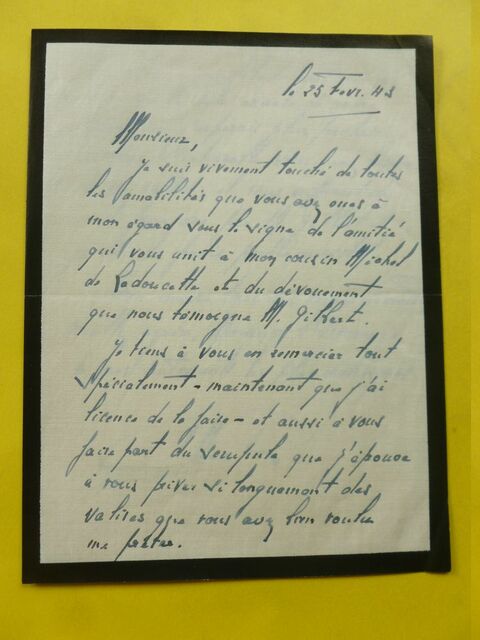 le 25 Fevr. 43
Monsieur,
Je suis vivement touché de toutes
les amabilités que vous avez eues à
mon égard sous le signe de l'amitié
qui vous unit à mon cousin Michel
de Ladoucette et du dévouement
que nous témoigne M. Gilbert.
Je tiens à vous en remercier tout
spécialement - maintenant que j'ai
licence de le faire - et aussi à vous
faire part du scrupule que j'éprouve
à vous priver si longuement des
valises que vous avez bien voulu
me prêter.